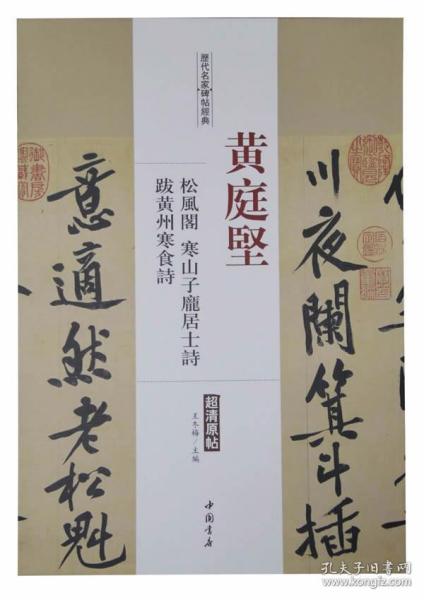 川夜闌箕斗插
歷代名家碑帖經典
黄庭堅
松風閣 寒山子龐居士詩
跋黄州寒食詩
超清原帖
王冬梅/主编
中国书店
意適然老松魁
孔夫子旧书网
www.kongfz.com